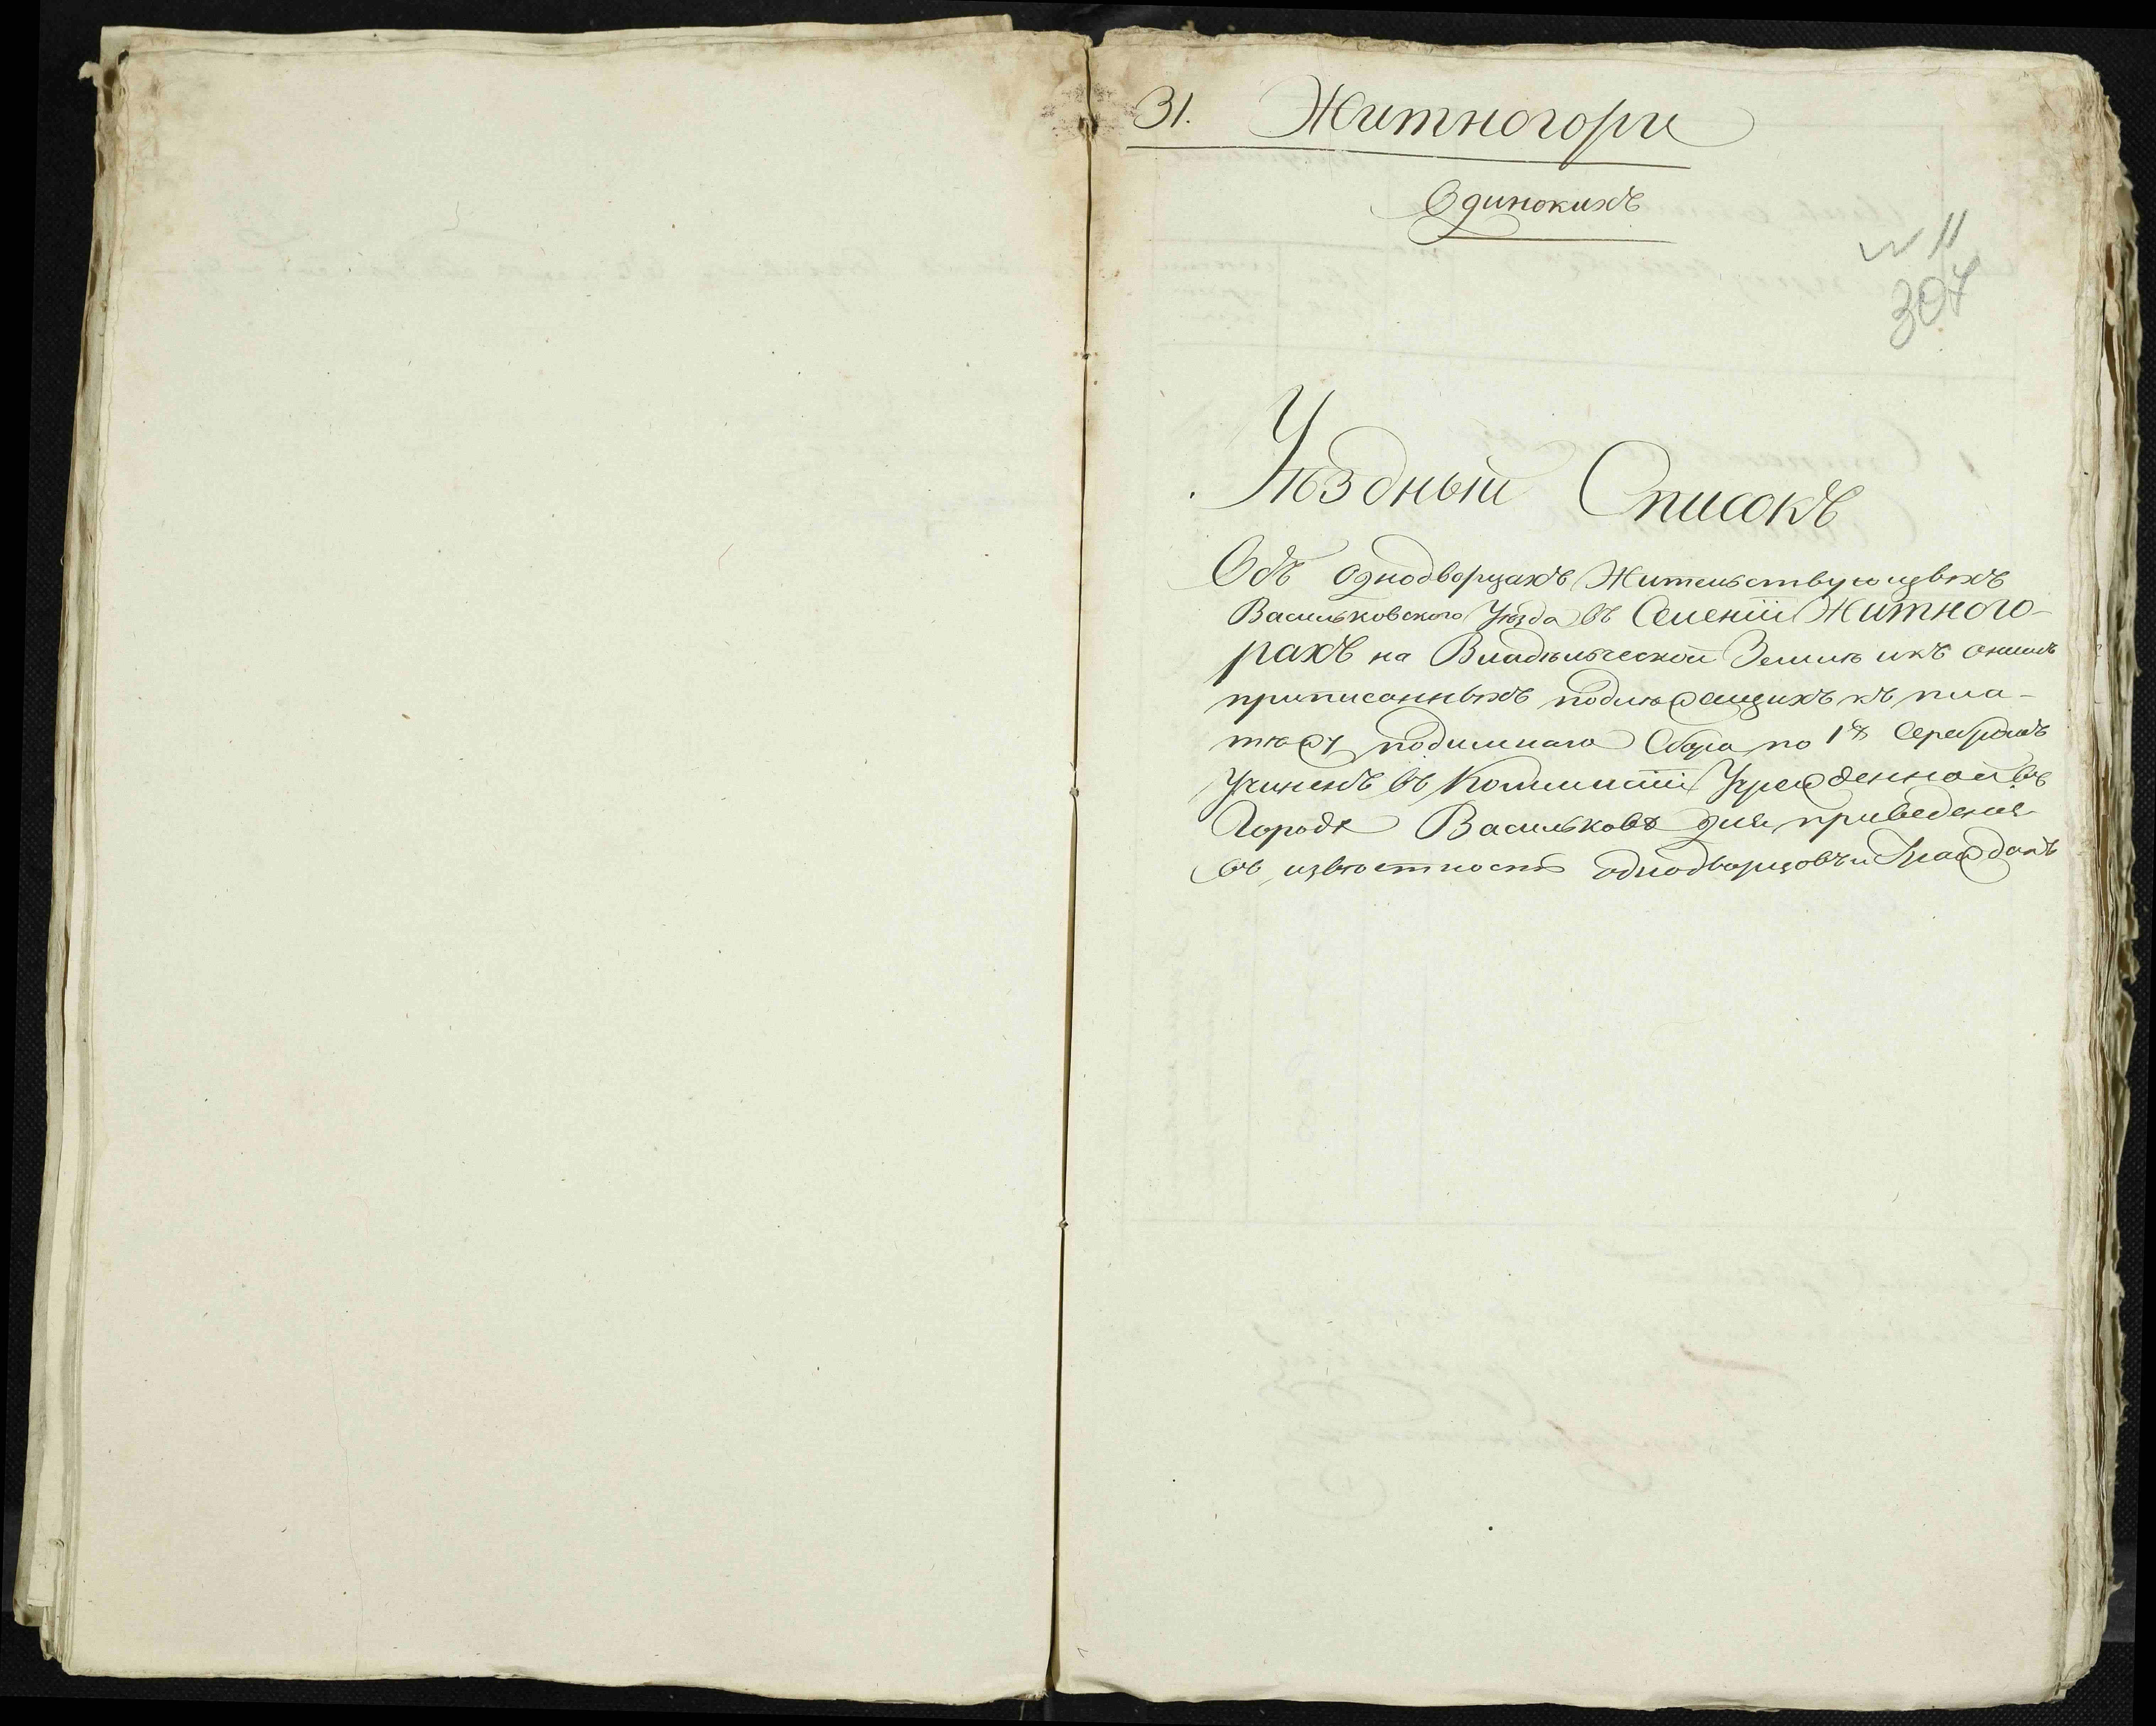 31. Житногори
Одинокихъ
307
Уѣздный Списокъ
Объ однодворцахъ Жительствующихъ
Васильковского Уѣзда въ Селеніи Житного-
рахъ на Владѣльческой Землѣ и къ онымъ
приписанныхъ подлежащихъ къ пла-
тежу подимнаго Сбора по 1 р Серебромъ
Учиненъ въ Коммиссіи Учрежденной въ
Городѣ Васильковѣ для приведенія
въ извѣстность однодворцовъ и Гражданъ